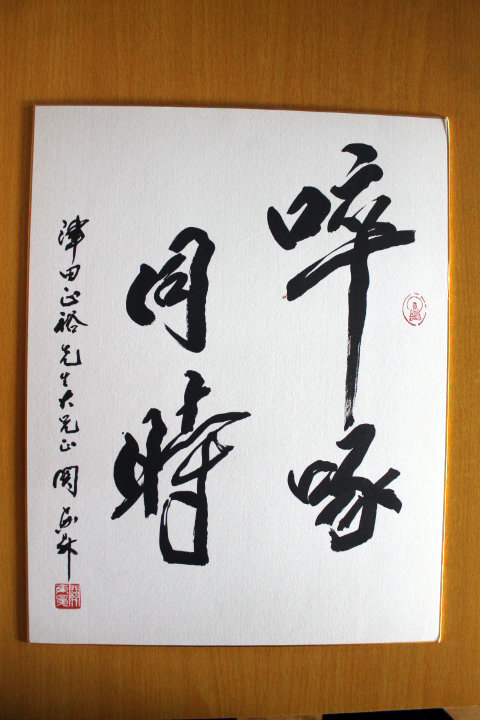 啐啄
同時
津田正裕先生大兄正 関